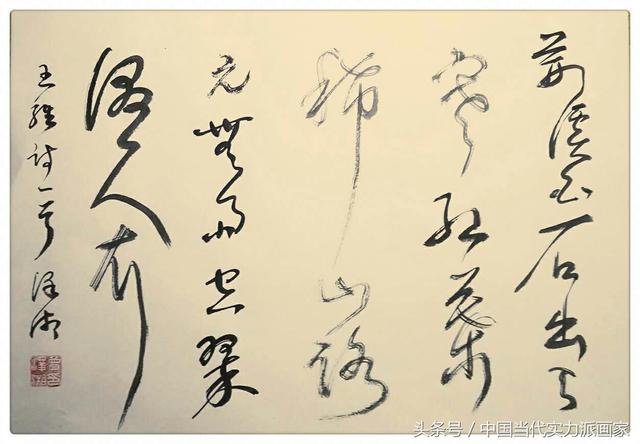 荊溪白石出天
寒紅葉
稀山路
元無雨空翠
濕人衣
王維詩一首
头条号 / 中国当代实力派画家